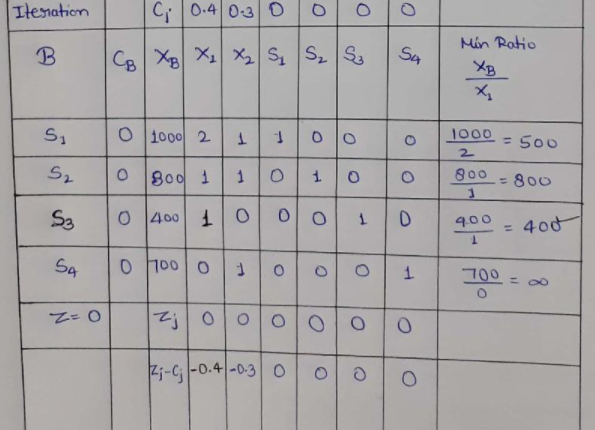 Iteration Cj 0.4 0.3 0 0 0 0
B CB XB X1 X2 S1 S2 S3 S4 Min Ratio XB/X1
S1 0 1000 2 1 1 0 0 0 1000/2 = 500
S2 0 800 1 1 0 1 0 0 800/1 = 800
S3 0 400 1 0 0 0 1 0 400/1 = 400
S4 0 700 0 1 0 0 0 1 700/0 = ∞
Z=0 Zj 0 0 0 0 0 0
Zj-Cj -0.4 -0.3 0 0 0 0